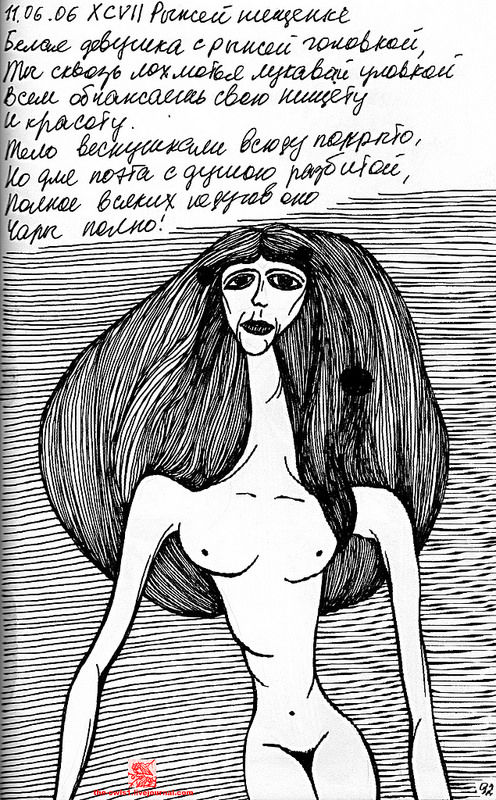 11.06.06 XCVII Рыжей нищенке
Белая девушка с рыжей головкой,
Ты сквозь лохмотья лукавой уловкой
Всем обнажаешь свою нищету
И красоту.
Тело веснушками всюду покрыто,
Но для поэта с душою разбитой,
Полное всяких недугов оно
Чары полно!
the-owl51.livejournal.com